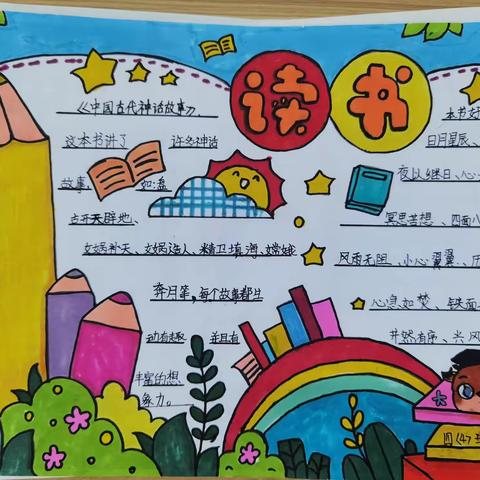 读书
《中国古代神话故事》,
这本书讲了 许多神话
故事, 如:盘
古开天辟地、
女娲补天、女娲造人、精卫填海、嫦娥
奔月等,每个故事都生
动有趣 并且有
丰富的想
象力。
本书好
日月星辰、
夜以继日、心
冥思苦想、四面八
风雨无阻、小心翼翼、历
心急如焚、铁面
井然有序、兴风
四(4)